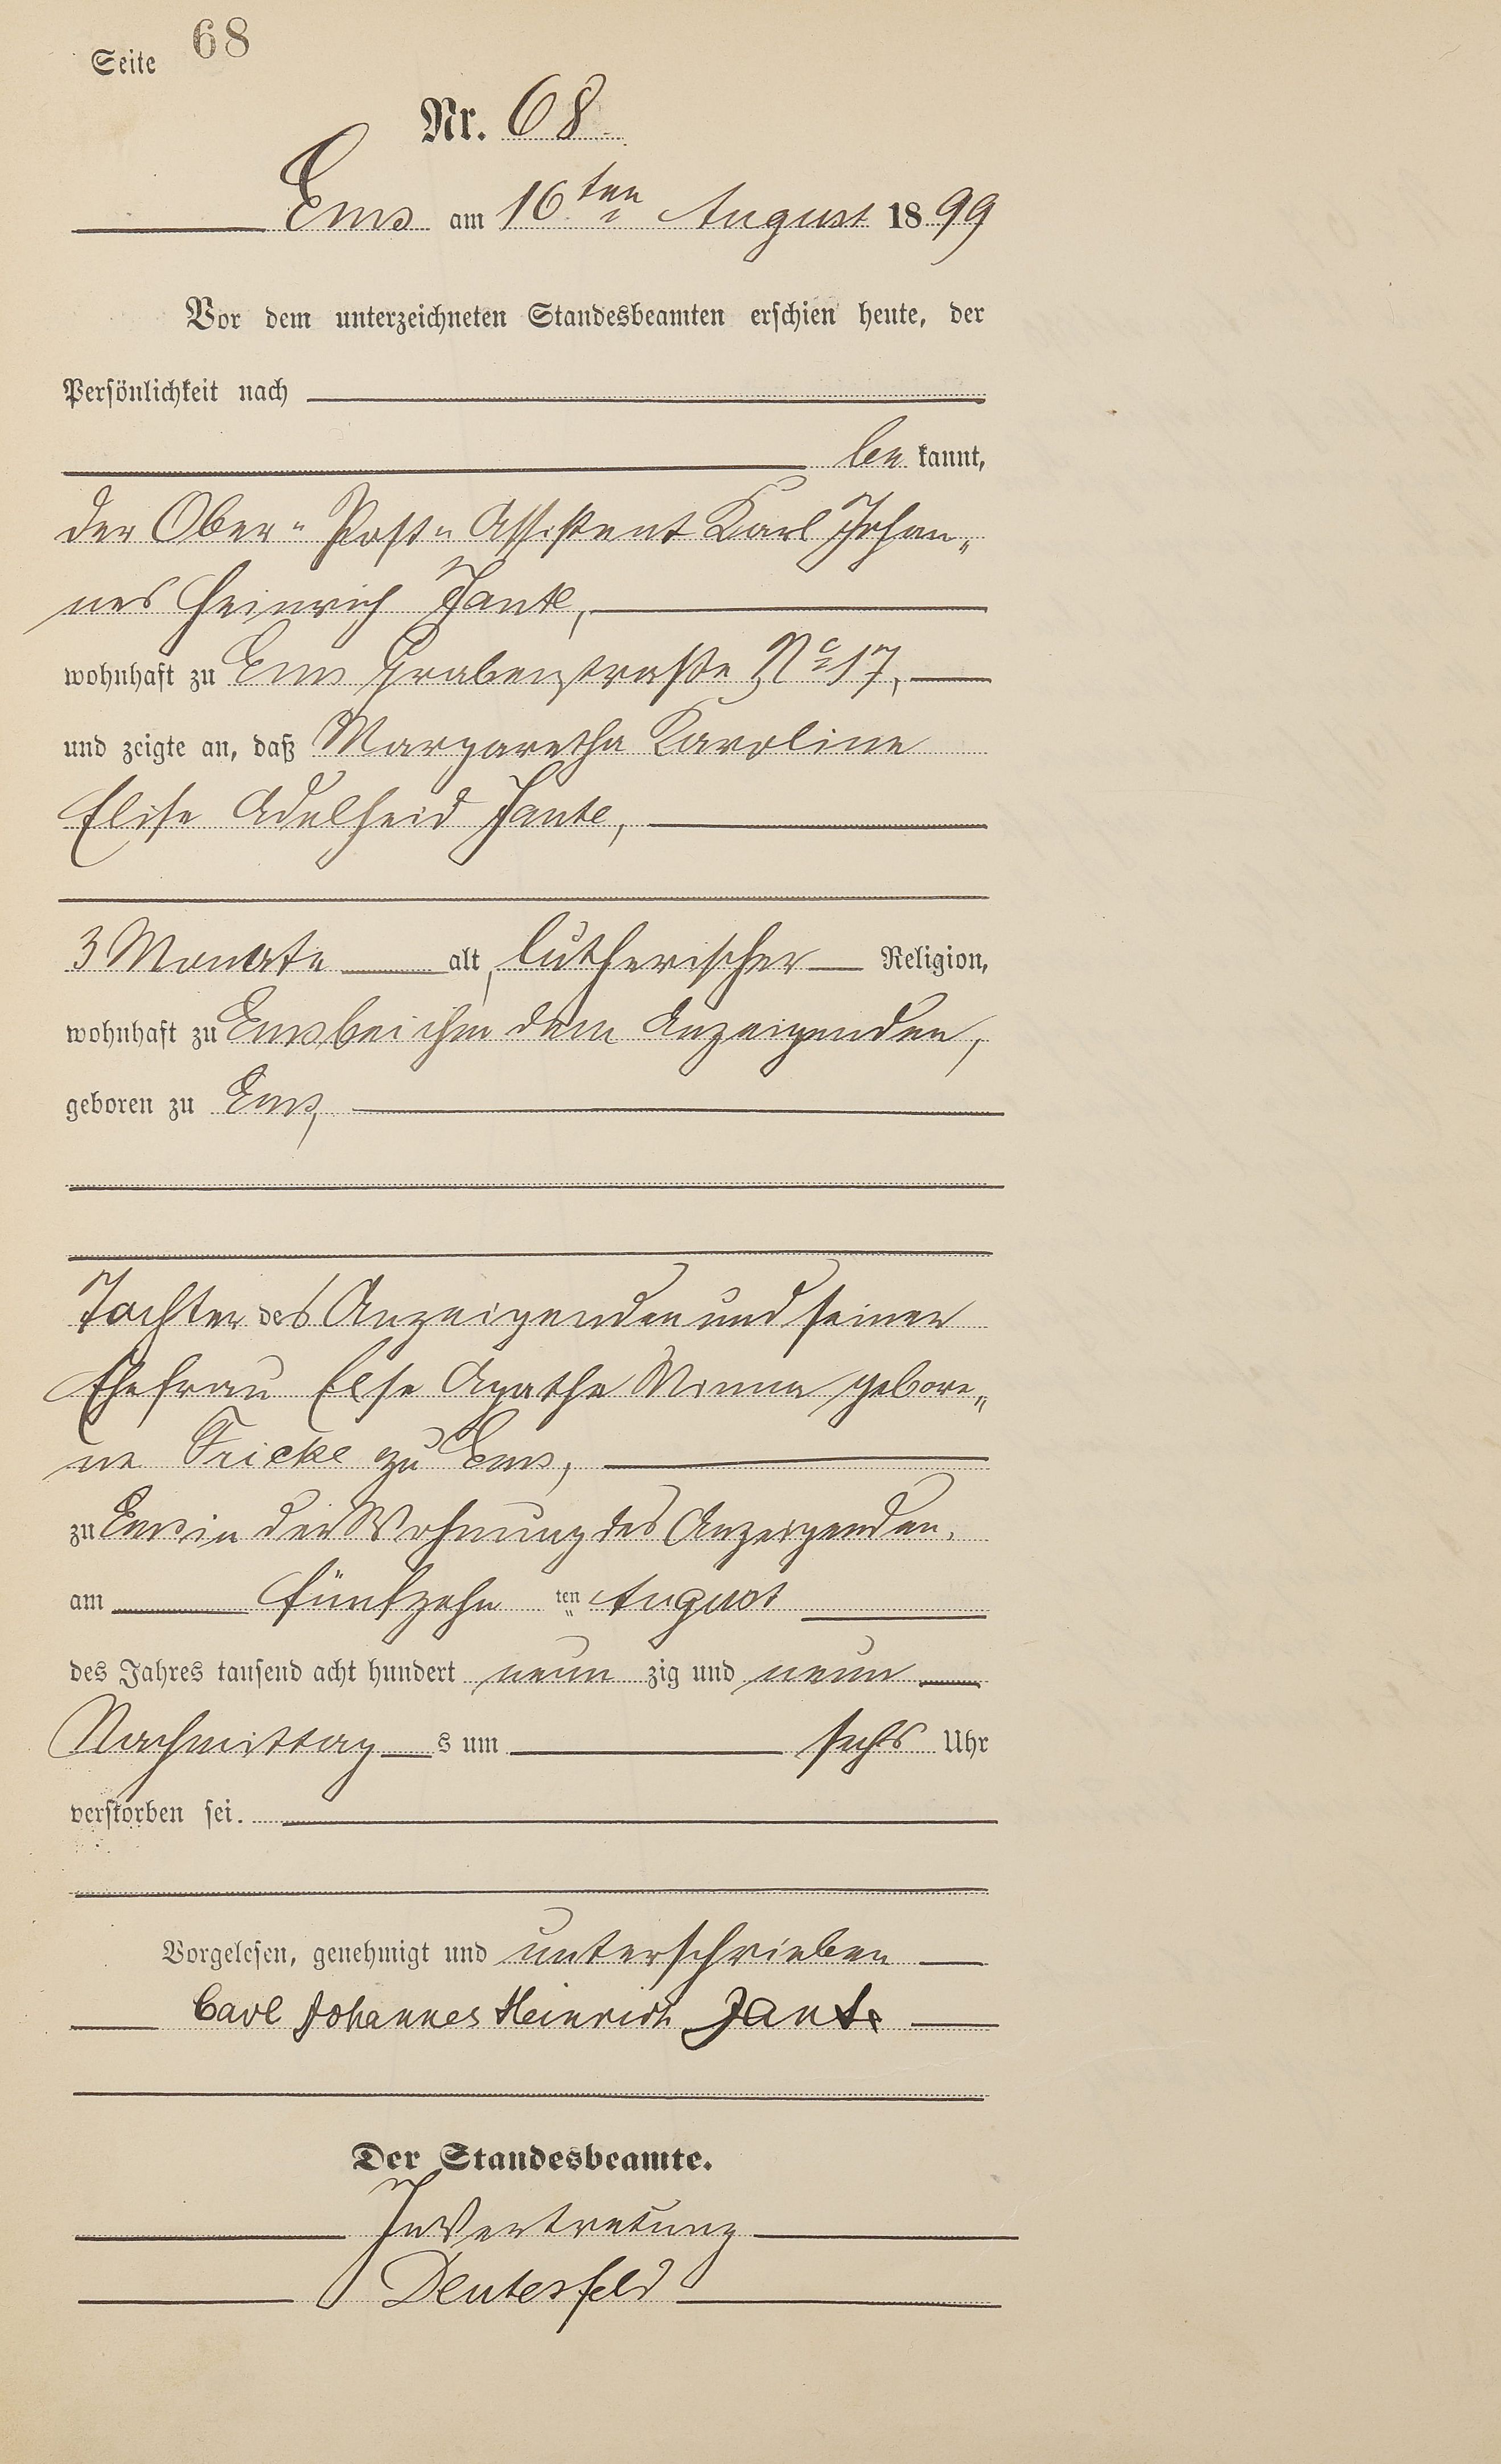 Seite 68
Nr. 68
Ems am 16ten August 1899
Vor dem unterzeichneten Standesbeamten erschien heute, der
Persönlichkeit nach
be kannt,
der Ober-Post-Assistent Karl Johan-
nes Heinrich Jante,
wohnhaft zu Ems Grabenstraße No 17,
und zeigte an, daß Margaretha Karoline
Elise Adelheid Jante,
3 Monate alt, lutherischer Religion,
wohnhaft zu Ems bei ihm dem Anzeigenden,
geboren zu Ems,
Tochter des Anzeigenden und seiner
Ehefrau Else Agathe Minna gebore-
ne Fricke zu Ems,
zu Ems in der Wohnung des Anzeigenden.
am fünfzehn ten August
des Jahres tausend acht hundert neun zig und neun
Nachmittag s um sechs Uhr
verstorben sei.
Vorgelesen, genehmigt und unterschrieben
Carl Johannes Heinrich Jante
Der Standesbeamte.
In Vertretung
Deutesfeld